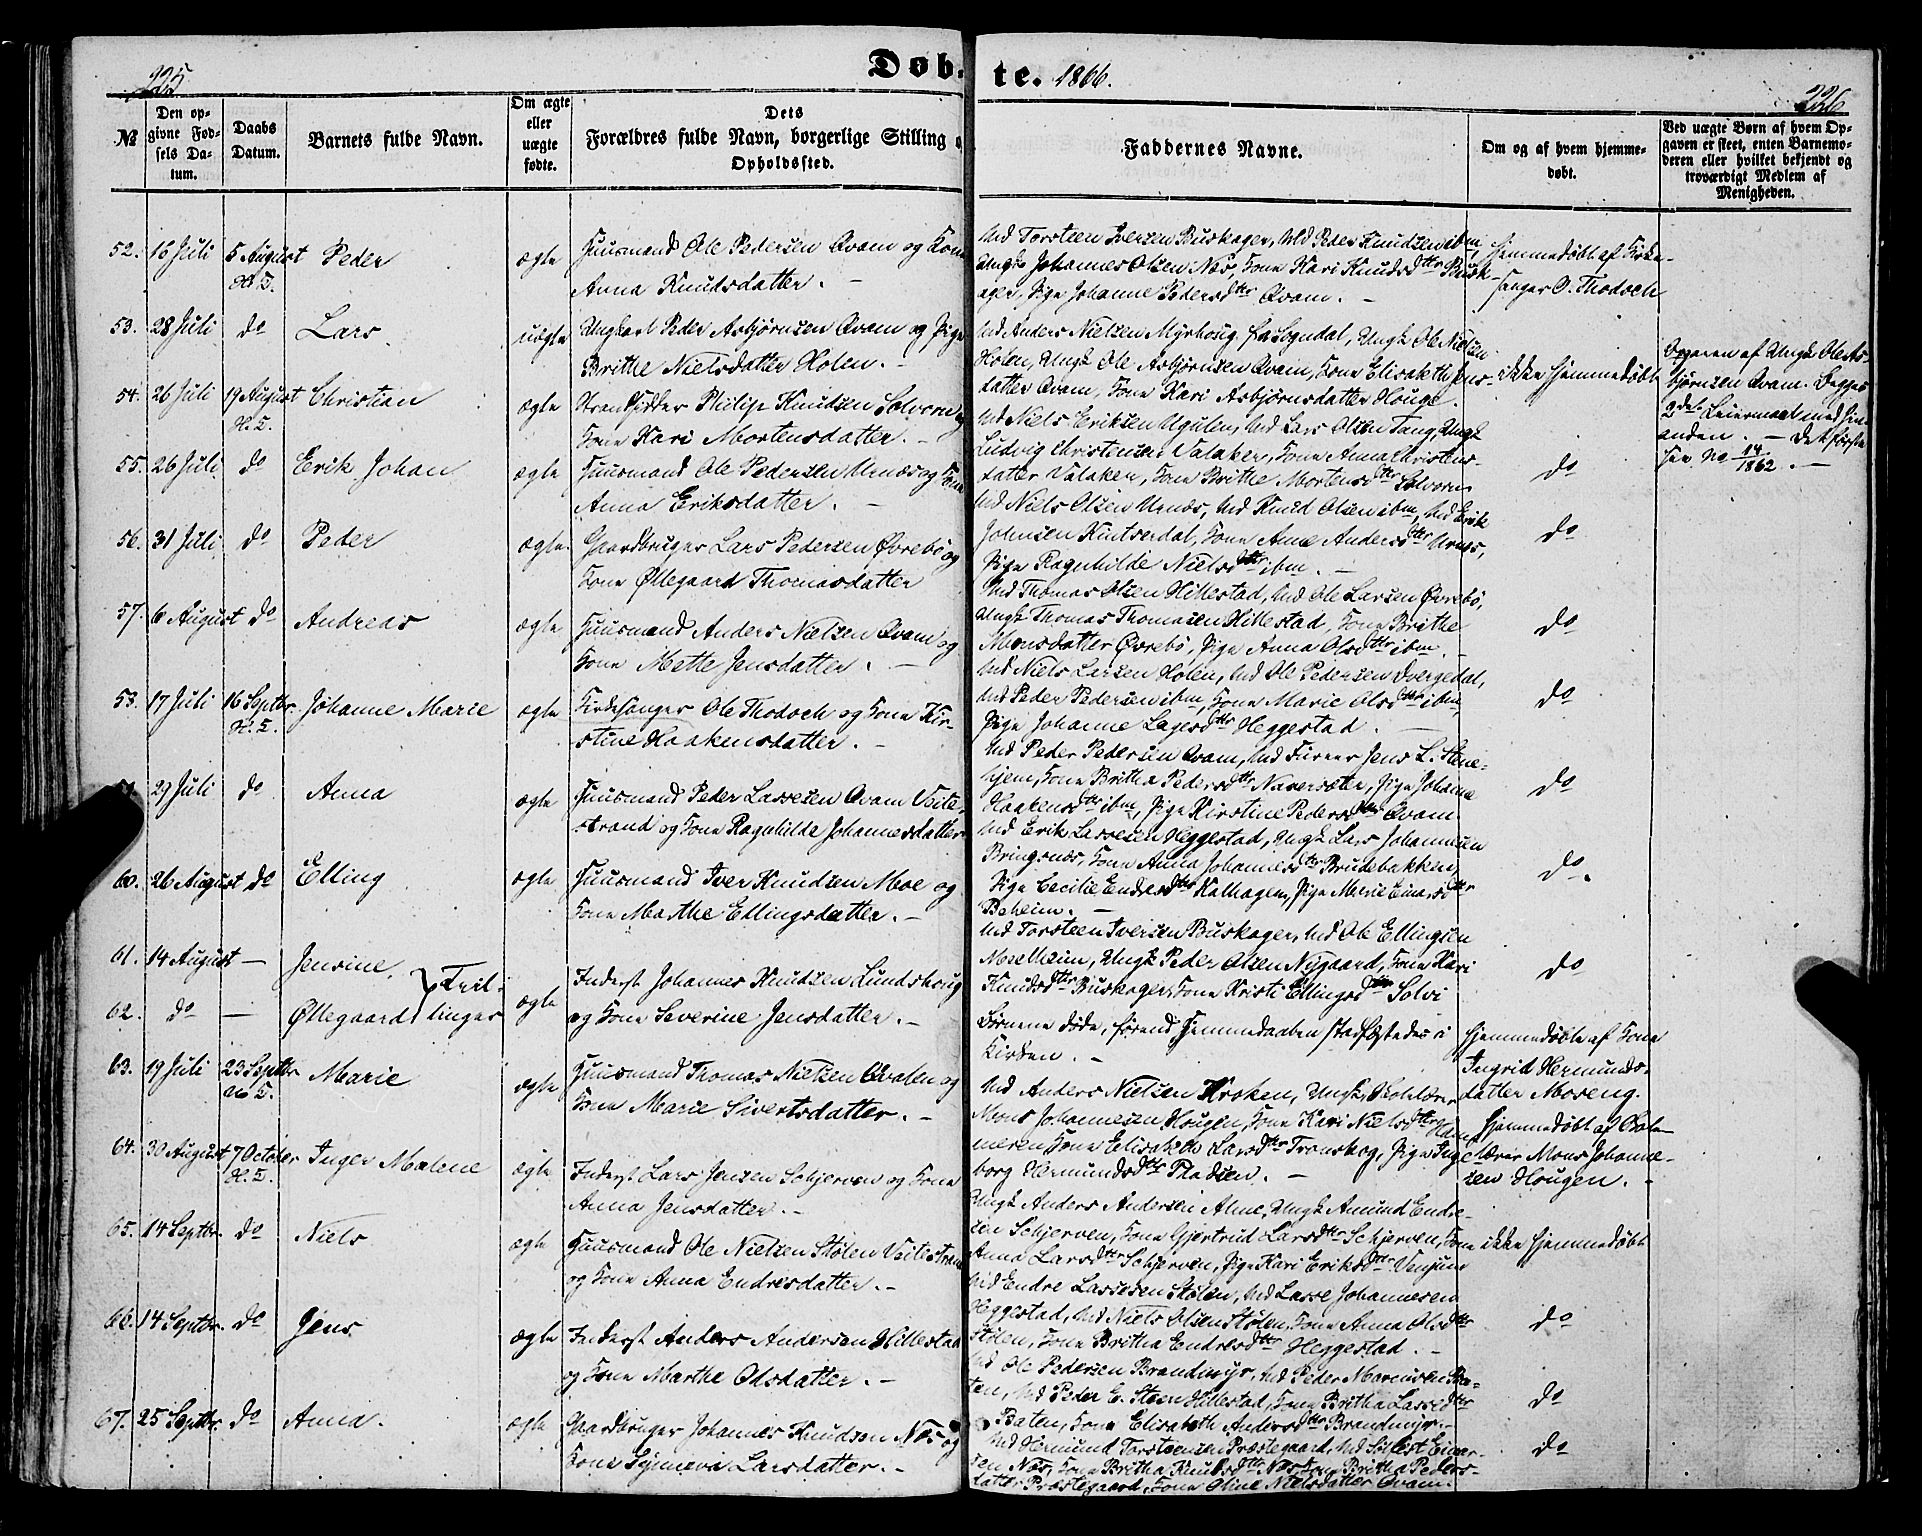 225
Døb-
te. 1866.
226
№
Den op-
givne Fød-
sels Da-
tum.
Daabs
Datum.
Barnets fulde Navn.
Om ægte
eller
uægte
fødte.
Dets
Forældres fulde Navn, borgerlige Stilling o
Opholdssted.
Faddernes Navne.
Om og af hvem hjemme-
døbt.
Ved uægte Børn af hvem Op-
gaven er skeet, enten Barnemo-
deren eller hvilket bekjendt og
troværdigt Medlem af
Menigheden.
52. 16 Juli 5 August Peder ægte Huusmand Ole Pedersen Qvam og Kone
H. T.
Anna Knudsdatter. -
Torsteen Iversen Buskager, Peder Knudsen ibm,
Ungk. Johannes Olsen Næs, Kone Kari Knudsdtr Busk-
ager, Pige Johanne Pedersdtr Qvam. -
Hjemmedøbt af Kirke-
sanger O. Thodoch
53. 28 Juli do Lars uægte Ungkarl Peder Asbjørnsen Qvam og Pige
Brithe Nielsdatter Holen. -
Anders Nielsen Myrhoug fra Sogndal, Ungk. Ole Nielsen
Holen, Ungk. Ole Asbjørnsen Qvam, Kone Elisabeth Jens-
datter Qvam, Kone Kari Asbjørnsdatter Houge.
ikke hjemmedøbt
Opgaven af Ungk. Ole As-
bjørnsen Qvam. Begges
2det Leiermaal med hin-
anden. - Det første
No 14/1862. -
54. 26 Juli 19 August Christian ægte Strandsidder Philip Knudsen Solvorn og
H. T.
Kone Kari Mortensdatter. -
Niels Eriksen Ugulen, Lars Olsen Tang, Ungk.
Ludvig Christensen Valaker, Kone Anna Christens-
datter Valaker, Kone Brithe Mortensdtr Solvorn
do
55. 26 Juli do Erik Johan ægte Huusmand Ole Pedersen Urnæs og Kone
Anna Eriksdatter. -
Niels Olsen Urnæs, Knud Olsen ibm, Erik
Johnsen Kintserdal, Kone Anne Andersdtr Urnæs,
Pige Ragnhilde Nielsdtr ibm. -
do
56. 31 Juli do Peder ægte. Gaardbruger Lars Pedersen Øvrebø og
Kone Øllegaard Thomasdatter
Thomas Olsen Hillestad, Ole Larsen Øvrebø,
Ungk. Thomas Thomasen Hillestad, Kone Brithe
Monsdatter Øvrebø, Pige Anna Olsdtr ibm. -
do
57. 6 August do Andreas ægte Huusmand Anders Nielsen Qvam og
Kone Mette Jensdatter. -
Niels Larsen Holen, Ole Pedersen Dvergedal,
Peder Pedersen ibm, Kone Marie Olsdtr ibm,
Pige Johanne Lagesdtr Heggestad. -
do
58. 17 Juli 16 Septbr. Johanne Marie ægte Kirkesanger Ole Thodoch og Kone Kir-
H. T.
stine Haakensdatter. -
Peder Pedersen Qvam, Jens L. Stene-
hjem, Kone Britha Pedersdtr Naversøten, Pige Johanne
Haakensdtr ibm, Pige Kirstine Pedersdtr Qvam
do
59. 29 Juli do Anna ægte Huusmand Peder Lassesen Qvam Veite-
strand og Kone Ragnhilde Johannesdatter
Erik Lassesen Heggestad, Ungk. Lars Johannesen
Bringsnæs, Kone Anna Johannesdtr Brudebakken,
Pige Cecilie Endresdtr Kalhagen, Pige Marie Einarsdtr
Beheim. -
do.
60. 26 August do Elling ægte Huusmand Iver Knudsen Moe og
Kone Marthe Ellingsdatter. -
Torsteen Iversen Buskager, Ole Ellingsen
Moelheim, Ungk. Peder Olsen Nygaard, Kone Kari
Knudsdtr Buskager, Kone Kristi Ellingsdtr Solvi
do
61. 14 August - Jensine. } Tvil-
62. do - Øllegaard } linger
ægte Inderst Johannes Knudsen Lundshoug
og Kone Severine Jensdatter. -
Børnene døde, førend Hjemmedaaben stadfæstedes i
Kirken. -
Hjemmedøbte af Kone
Ingrid Hermunds-
datter Moseng.
63. 19 Juli 23 Septbr Marie ægte Huusmand Thomas Nielsen Qvalen og
Kone Marie Sivertsdatter. -
Anders Nielsen Kroken, Ungk.
Mons Johannesen Hougen, Kone Kari Nielsdtr Ham-
meren, Kone Elisabeth Larsdtr Tronskog, Pige Inge-
borg Hermundsdtr Thadsen. -
Hjemmedøbt af
lærer Mons Johanne-
sen Hougen. -
64. 30 August 7 October Inger Malene ægte Inderst Lars Jensen Schjerven og Kone
H. T.
Anna Jensdatter. -
Ungk. Anders Andersen Alme, Ungk. Amund Endre-
sen Schjerven, Kone Gjertrud Larsdtr Schjerven, Kone
Anna Larsdtr Schjerven, Pige Kari Eriksdtr Venjum
ikke hjemmedøbt
65. 14 Septbr. do Niels ægte Huusmand Ole Nielsen Stølen Veitestrand
og Kone Anna Endresdatter. -
Endre Lassesen Stølen, Lasse Johannesen
Heggestad, Niels Olsen Stølen, Kone Anna Olsdtr
Stølen, Kone Britha Endresdtr Heggestad. -
do
66. 14 Septbr. do Jens ægte Inderst Anders Andersen Hillestad
og Kone Marthe Olsdatter. -
Ole Pedersen Brandmyr, Peder Monsen Ba-
ten, Peder E. Steen Hillestad, Kone Britha Lassedtr
Baten, Kone Elisabeth Andersdtr Brandmyr. -
do
67. 25 Septbr. do Anna. ægte Gaardbruger Johannes Knudsen Næs og
Kone Synneva Larsdatter. -
Hermund Torsteensen Præstegaard, Einar-
sen Næs, Kone Britha Knudsdtr Næs, Kone Britha Peders-
datter Præstegaard, Kone Oline Nielsdatter Qvam.
do